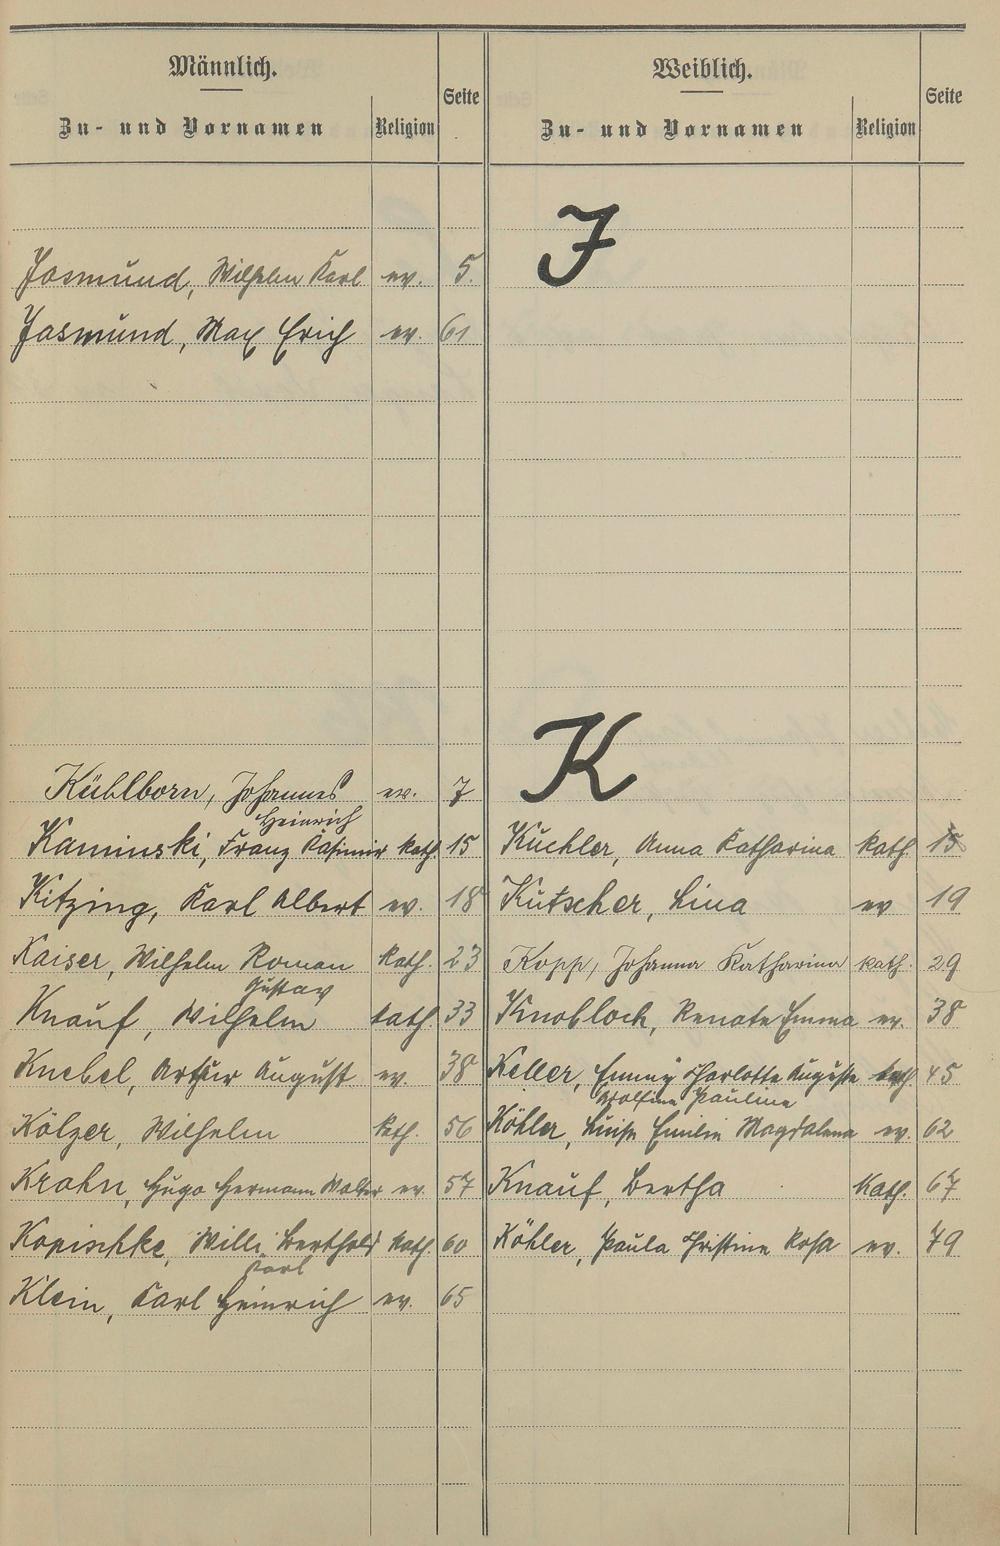 Männlich.
Zu- und Vornamen
Religion
Seite
Weiblich.
Zu- und Vornamen
Religion
Seite
J
Jasmund, Wilhelm Karl ev. 5.
Jasmund, Max Erich ev. 61
K
Kühlborn, Johannes ev. 7
Heinrich
Kaminski, Franz Kasimir kath. 15
Küchler, Anna Katharina kath. 15
Kitzing, Karl Albert ev. 18
Kutscher, Lina ev 19
Kaiser, Wilhelm Roman kath. 23
Kopp, Johanna Katharina kath. 29
Gustav
Knauf, Wilhelm kath. 33
Knobloch, Renate Emma ev. 38
Knebel, Artur August ev. 38
Keller, Emmy Charlotte Auguste kath. 45
Adolfine Pauline
Kölzer, Wilhelm kath. 56
Köhler, Luise Emilie Magdalena ev. 62
Krahn, Hugo Hermann Walter ev. 57
Knauf, Bertha kath. 67
Kopischke, Willi Berthold kath. 60
Köhler, Paula Christine Rosa ev. 79
Karl
Klein, Karl Heinrich ev. 65